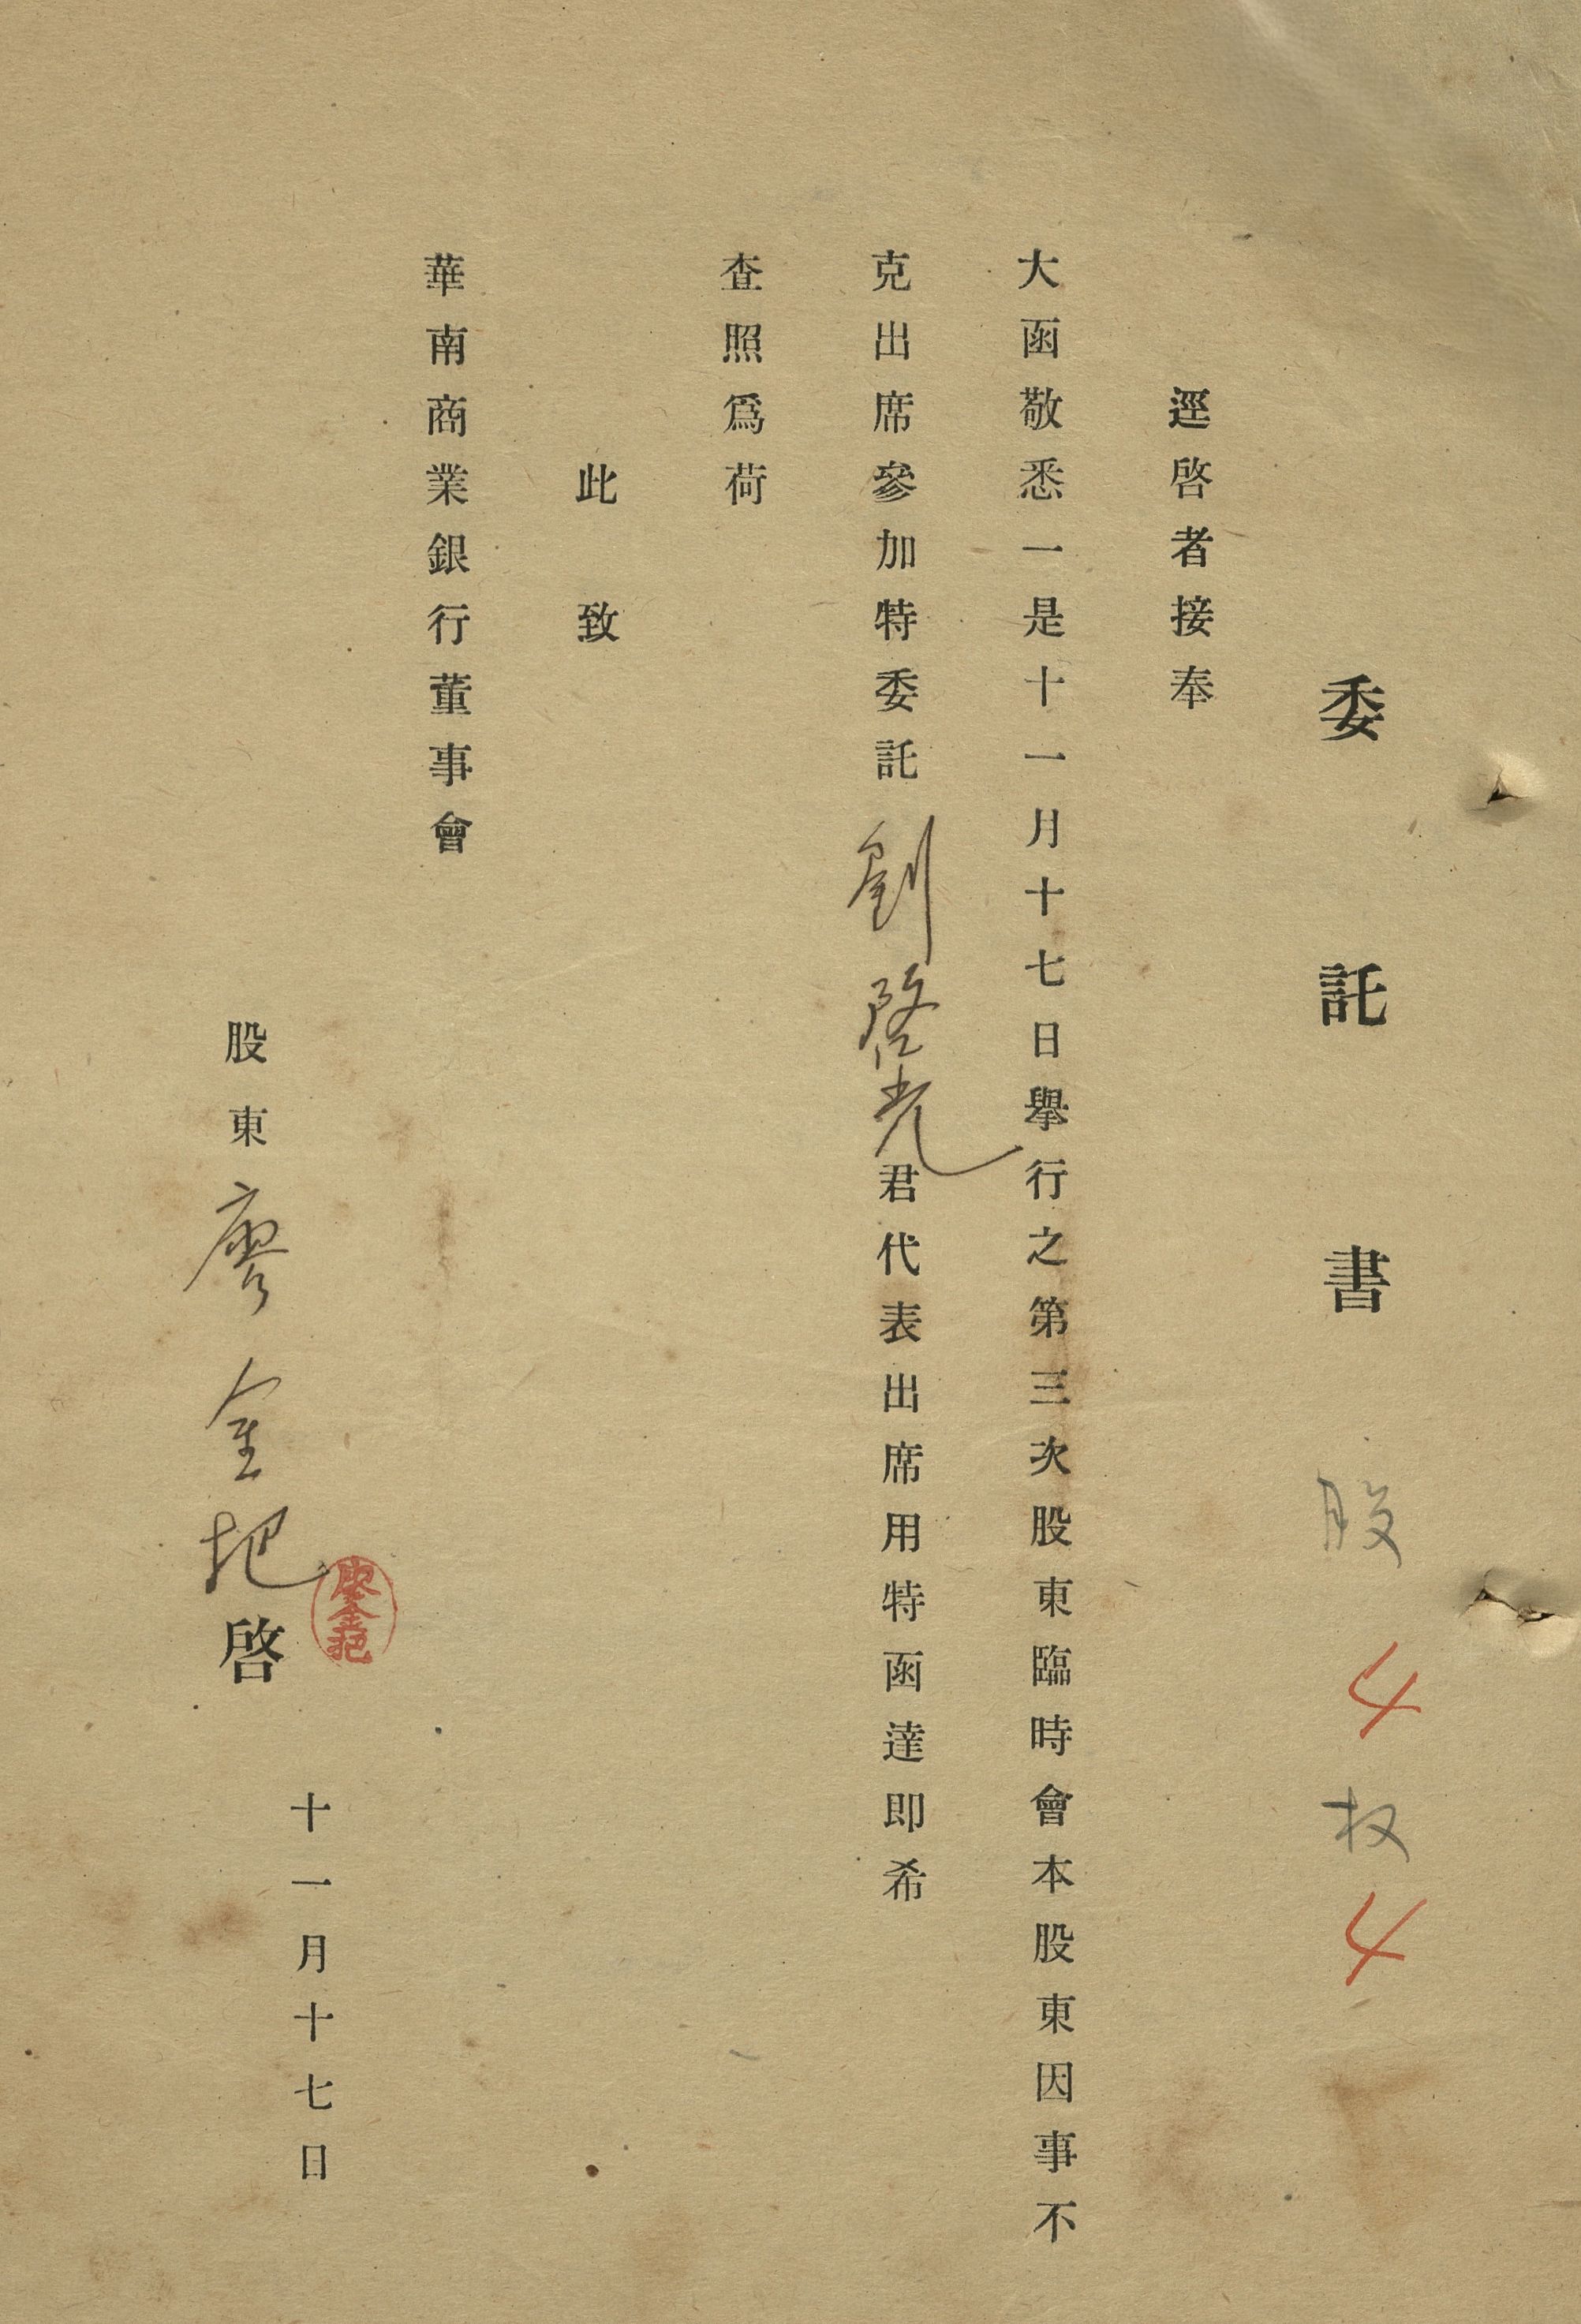 委託書 股 4 权 4
逕啓者接奉
大函敬悉一是十一月十七日舉行之第三次股東臨時會本股東因事不
克出席參加特委託劉啓光君代表出席用特函達即希
查照爲荷
此致
華南商業銀行董事會
十一月十七日
股東廖金把啓
廖金把